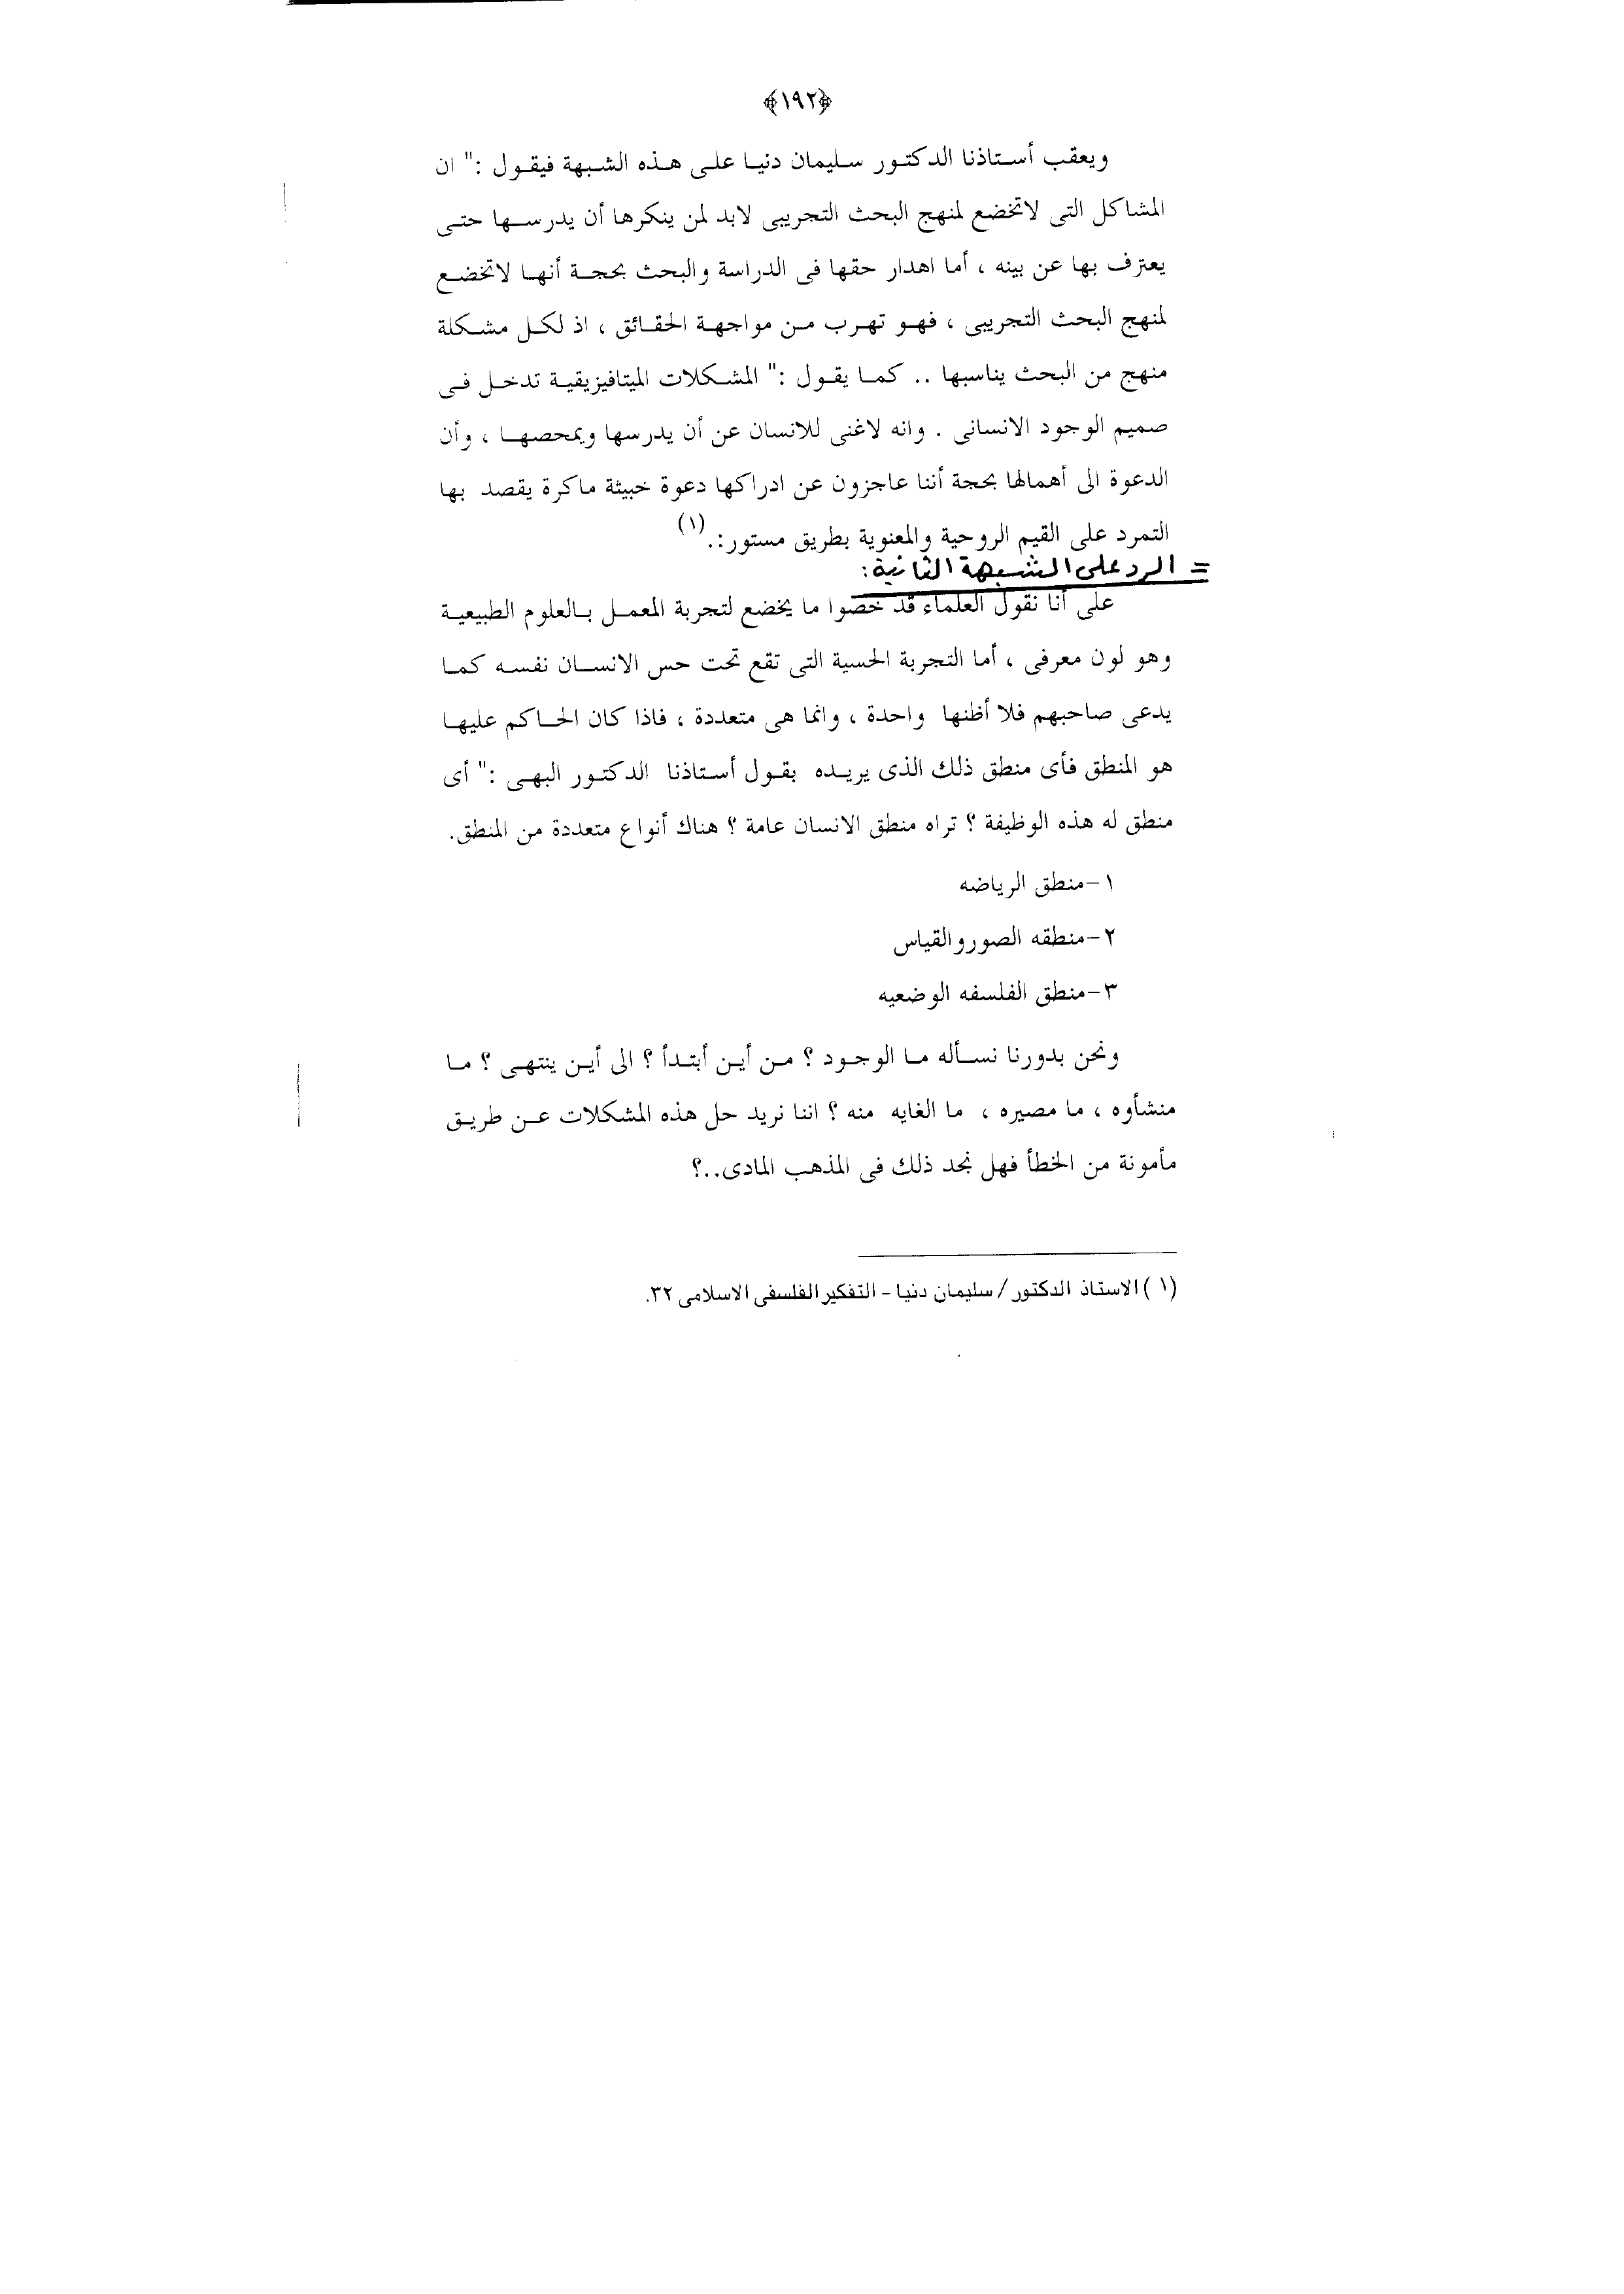 ﴿١٩٢﴾
ويعقب أستاذنا الدكتور سليمان دنيا على هذه الشبهة فيقول :" ان
المشاكل التى لاتخضع لمنهج البحث التجريبى لابد لمن ينكرها أن يدرسها حتى
يعترف بها عن بينه ، أما اهدار حقها فى الدراسة والبحث بحجة أنها لاتخضع
لمنهج البحث التجريبى ، فهو تهرب من مواجهة الحقائق ، اذ لكل مشكلة
منهج من البحث يناسبها .. كما يقول :" المشكلات الميتافيزيقية تدخل فى
صميم الوجود الانسانى . وانه لاغنى للانسان عن أن يدرسها ويمحصها ، وأن
الدعوة الى أهمالها بحجة أننا عاجزون عن ادراكها دعوة خبيثة ماكرة يقصد بها
التمرد على القيم الروحية والمعنوية بطريق مستور:.(١)
= الرد على الشبهة الثانية:
على أنا نقول العلماء قد خصوا ما يخضع لتجربة المعمل بالعلوم الطبيعية
وهو لون معرفى ، أما التجربة الحسية التى تقع تحت حس الانسان نفسه كما
يدعى صاحبهم فلا أظنها واحدة ، وانما هى متعددة ، فاذا كان الحاكم عليها
هو المنطق فأى منطق ذلك الذى يريده بقول أستاذنا الدكتور البهى :" أى
منطق له هذه الوظيفة ؟ تراه منطق الانسان عامة ؟ هناك أنواع متعددة من المنطق.
١-منطق الرياضه
٢-منطقه الصوروالقياس
٣-منطق الفلسفه الوضعيه
ونحن بدورنا نسأله ما الوجود ؟ من أين أبتدأ ؟ الى أين ينتهى ؟ ما
منشأوه ، ما مصيره ، ما الغايه منه ؟ اننا نريد حل هذه المشكلات عن طريق
مأمونة من الخطأ فهل نجد ذلك فى المذهب المادى..؟
(١) الاستاذ الدكتور/ سليمان دنيا - التفكير الفلسفى الاسلامى ٣٢.